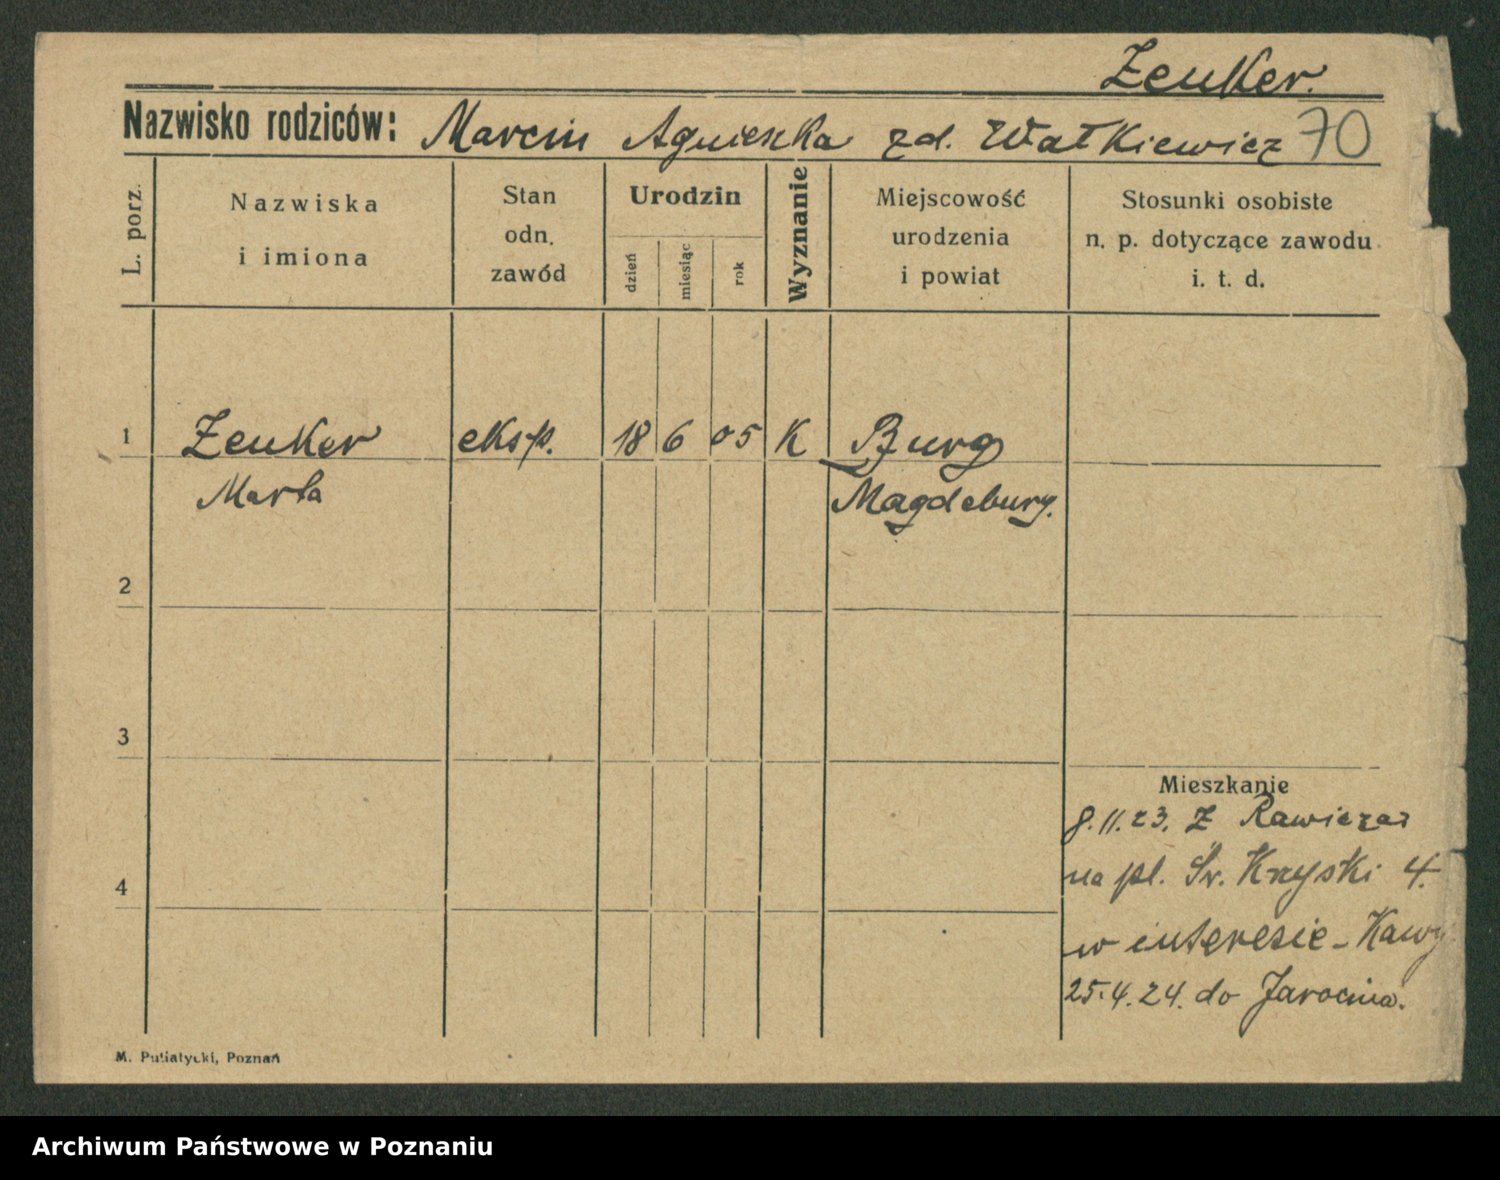 Zenker.
Nazwisko rodziców: Marcin Agnieszka zd. Wałkiewicz 70
L. porz.
Nazwiska
i imiona
Stan
odn.
zawód
Urodzin
dzień
miesiąc
rok
Wyznanie
Miejscowość
urodzenia
i powiat
Stosunki osobiste
n. p. dotyczące zawodu
i. t. d.
1 Zenker eksp. 18 6 05 K Burg
Marta Magdeburg.
2
3
Mieszkanie
8.11.23. Z Rawicza
na pl. Św. Krzyski 4.
4
w interesie - Kawy
25.4.24. do Jarocina.
M. Putiatycki, Poznań
Archiwum Państwowe w Poznaniu